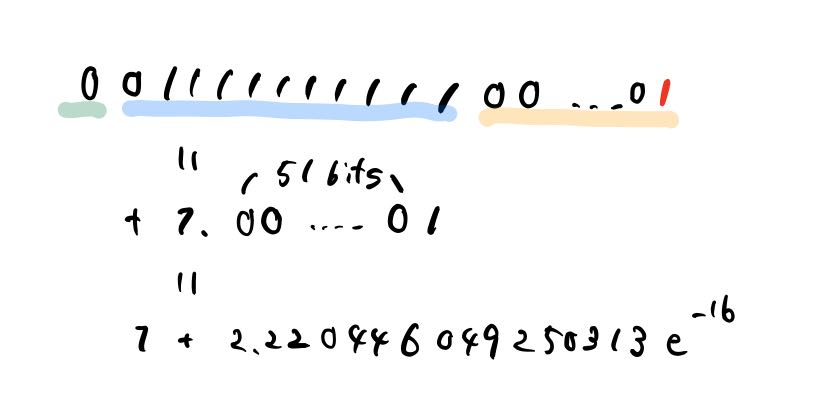 0 01111111111 00 ....01
=
51 bits
+ 1. 00 ..... 01
=
1 + 2.220446049250313 e^-16